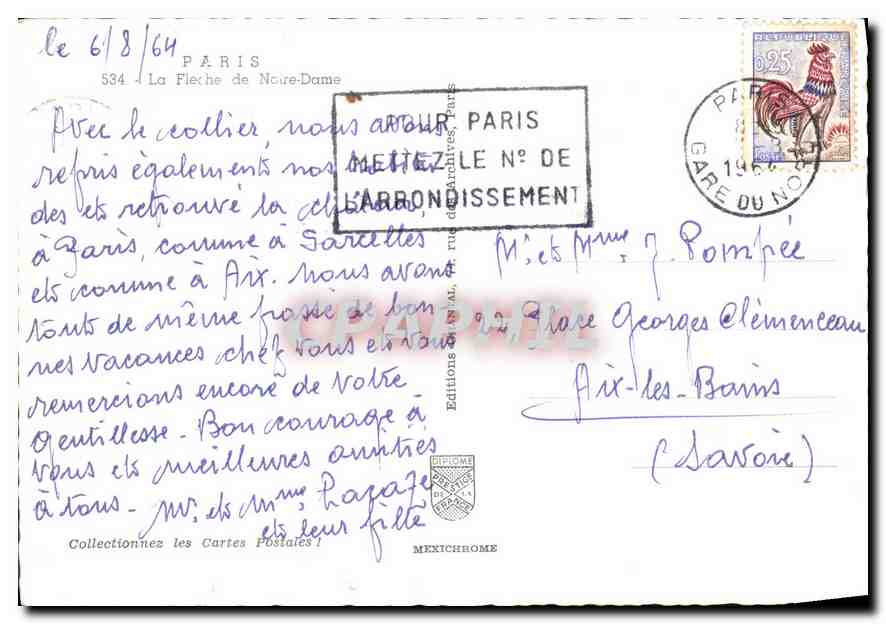 le 6/8/64
PARIS
534 - La Flèche de Notre-Dame
Avec le collier, nous avons
repris également nos
des et retrouvé la chaleur,
à Paris, comme à Sarcelles
et comme à Aix. Nous avons
tout de même passé de bon
nes vacances chez vous et vous
remercions encore de votre
gentillesse - Bon courage à
vous et meilleures amitiés
à tous - Mr. et Mme
et leur fille
Collectionnez les Cartes Postales !
POUR PARIS
METTEZ LE No DE
L'ARRONDISSEMENT
Editions CHANTAL, rue des Archives, Paris
DIPLOME
PRESTIGE
DE LA
FRANCE
MEXICHROME
REPUBLIQUE FRANÇAISE
0,25
POSTES
PARIS
1964
GARE DU NORD
Mr. et Mme. J. Pompée
22 Place Georges Clémenceau
Aix-les-Bains
(Savoie)
CPAPHIL